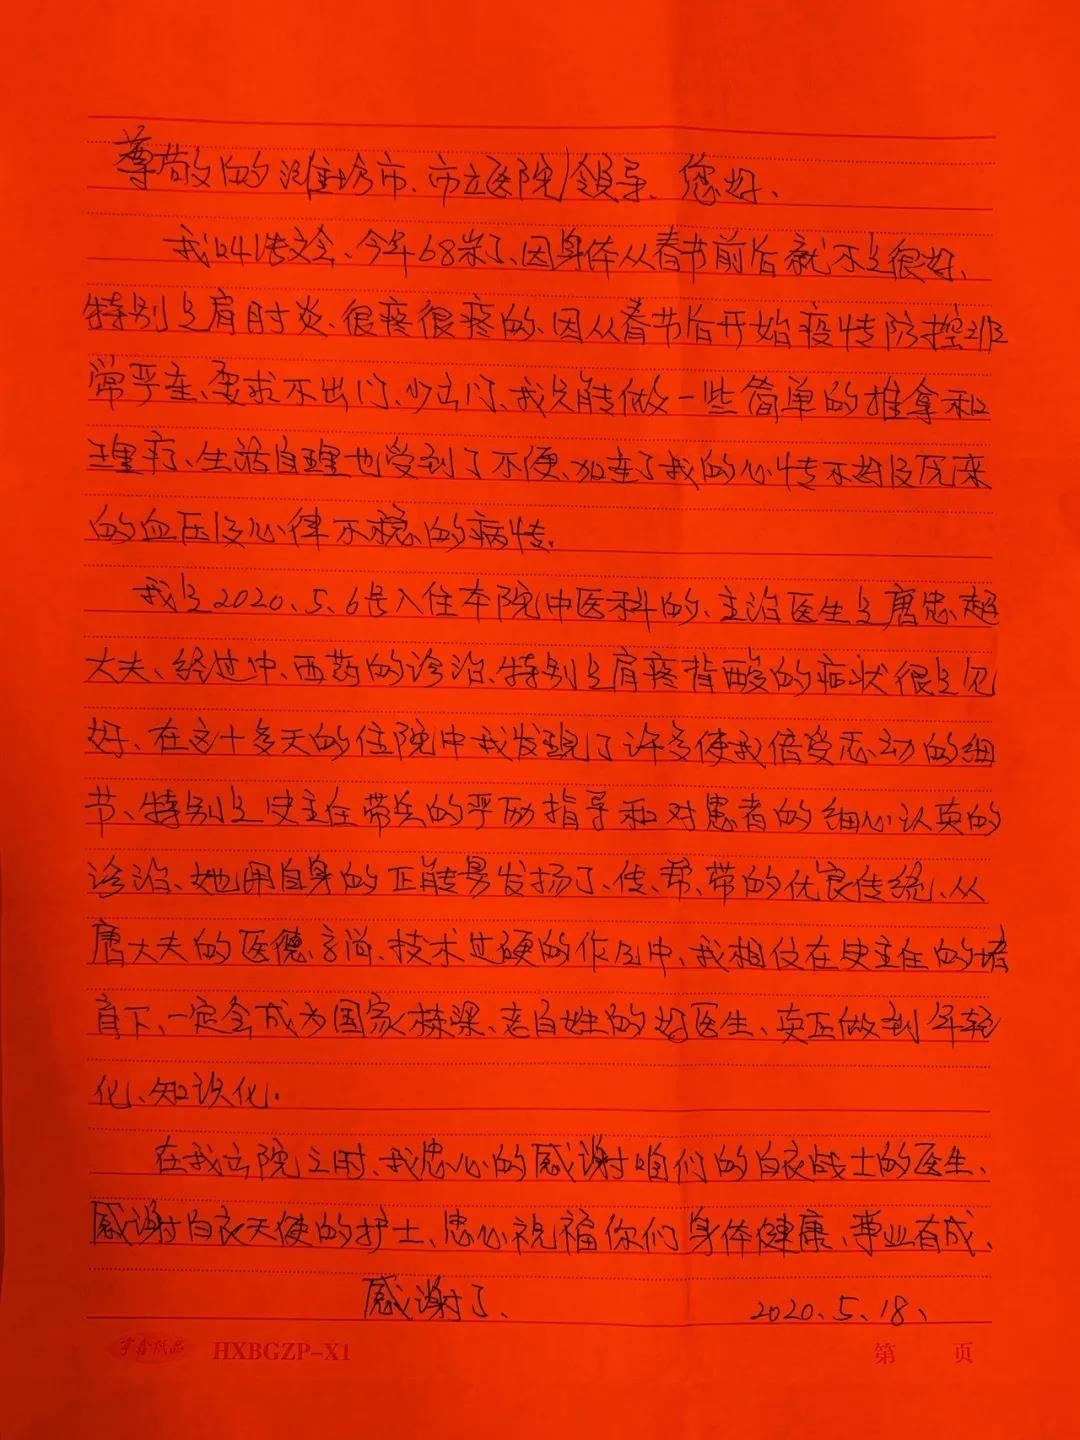 尊敬的潍坊市、市立医院领导、您好、
我叫张文会、今年68岁了、因身体从春节前后就不是很好、
特别是肩肘炎、很疼很疼的、因从春节后开始疫情防控非
常严重、要求不出门、少出门、我只能做一些简单的推拿和
理疗、生活自理也受到了不便、加连了我的心情不好及原来
的血压及心律不稳的病情。
我是2020.5.6号入住本院中医科的、主治医生是唐忠超
大夫、经过中、西药的诊治、特别是肩疼背酸的症状很是见
好、在这十多天的住院中我发现了许多使我倍受感动的细
节、特别是史主任带兵的严励指导和对患者的细心认真的
诊治、她用自身的正能量发扬了、传、帮、带的优良传统、从
唐大夫的医德高尚、技术过硬的作风中、我相信在史主任的培
育下、一定会成为国家栋梁、老百姓的好医生、真正做到年轻
化、知识化。
在我出院之时、我忠心的感谢咱们的白衣战士的医生、
感谢白衣天使的护士、忠心祝福你们身体健康、事业有成、
感谢了、
2020.5.18、
宇春纸品 HXBGZP-X1 第 页